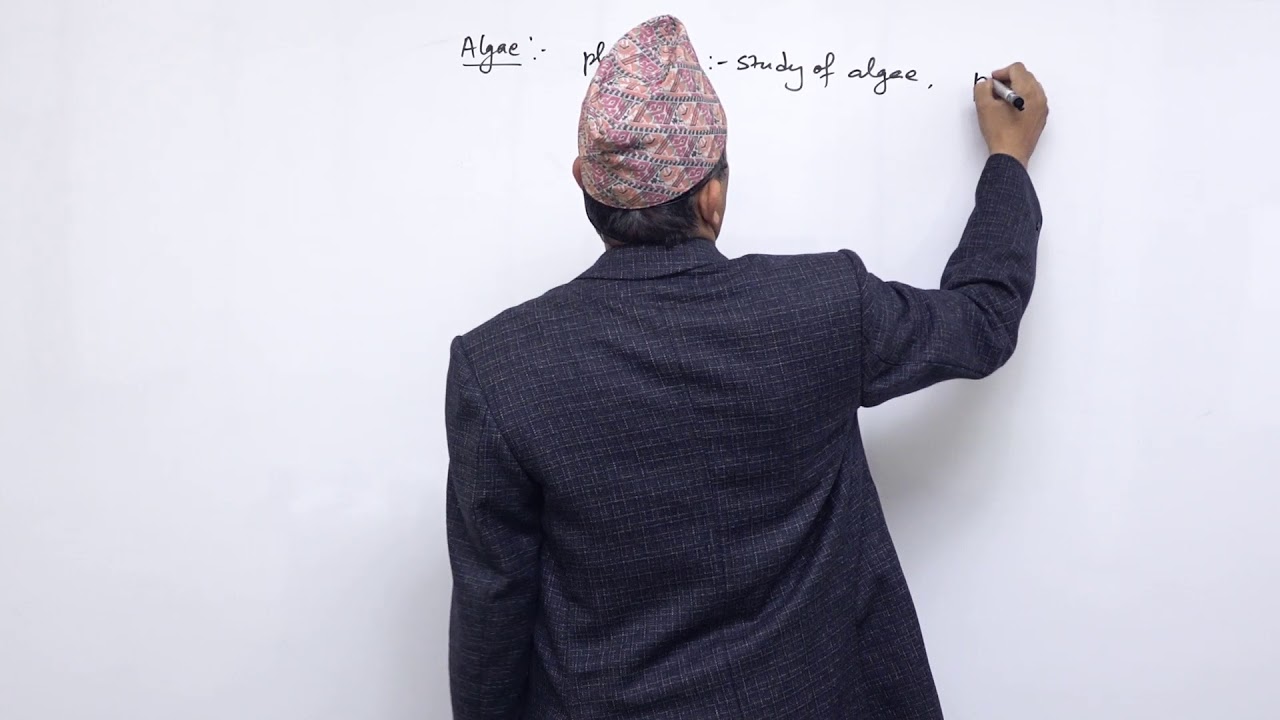 Algae :- :- study of algae,